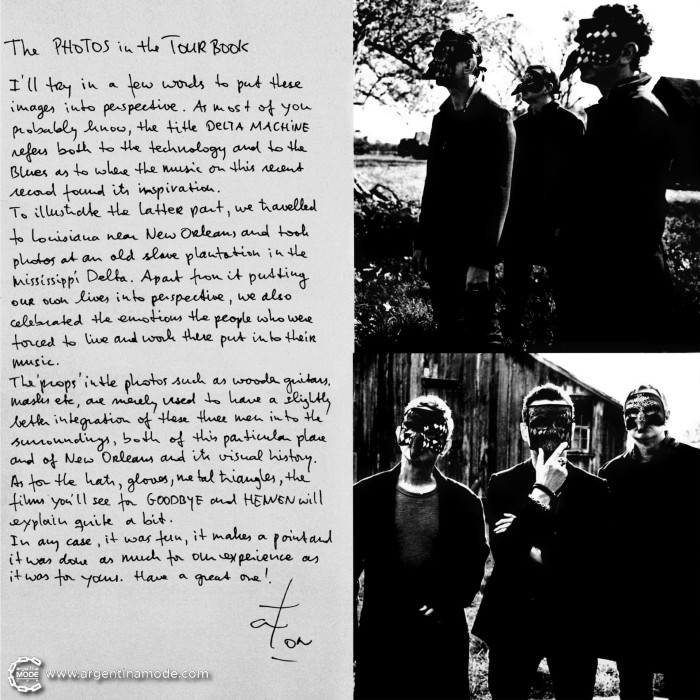 The PHOTOS in the TOUR BOOK
I'll try in a few words to put these
images into perspective. As most of you
probably know, the title DELTA MACHINE
refers both to the technology and to the
Blues as to where the music on this recent
record found its inspiration.
To illustrate the latter part, we travelled
to Louisiana near New Orleans and took
photos at an old slave plantation in the
Mississippi Delta. Apart from it putting
our own lives into perspective, we also
celebrated the emotions the people who were
forced to live and work there put into their
music.
The 'props' in the photos such as wooden guitars,
masks etc, are merely used to have a slightly
better integration of these three men into the
surroundings, both of this particular place
and of New Orleans and its visual history.
As for the hats, gloves, metal triangles, the
films you'll see for GOODBYE and HEAVEN will
explain quite a bit.
In any case, it was fun, it makes a point and
it was done as much for our experience as
it was for yours. Have a great one!
argentina
MODE
www.argentinamode.com